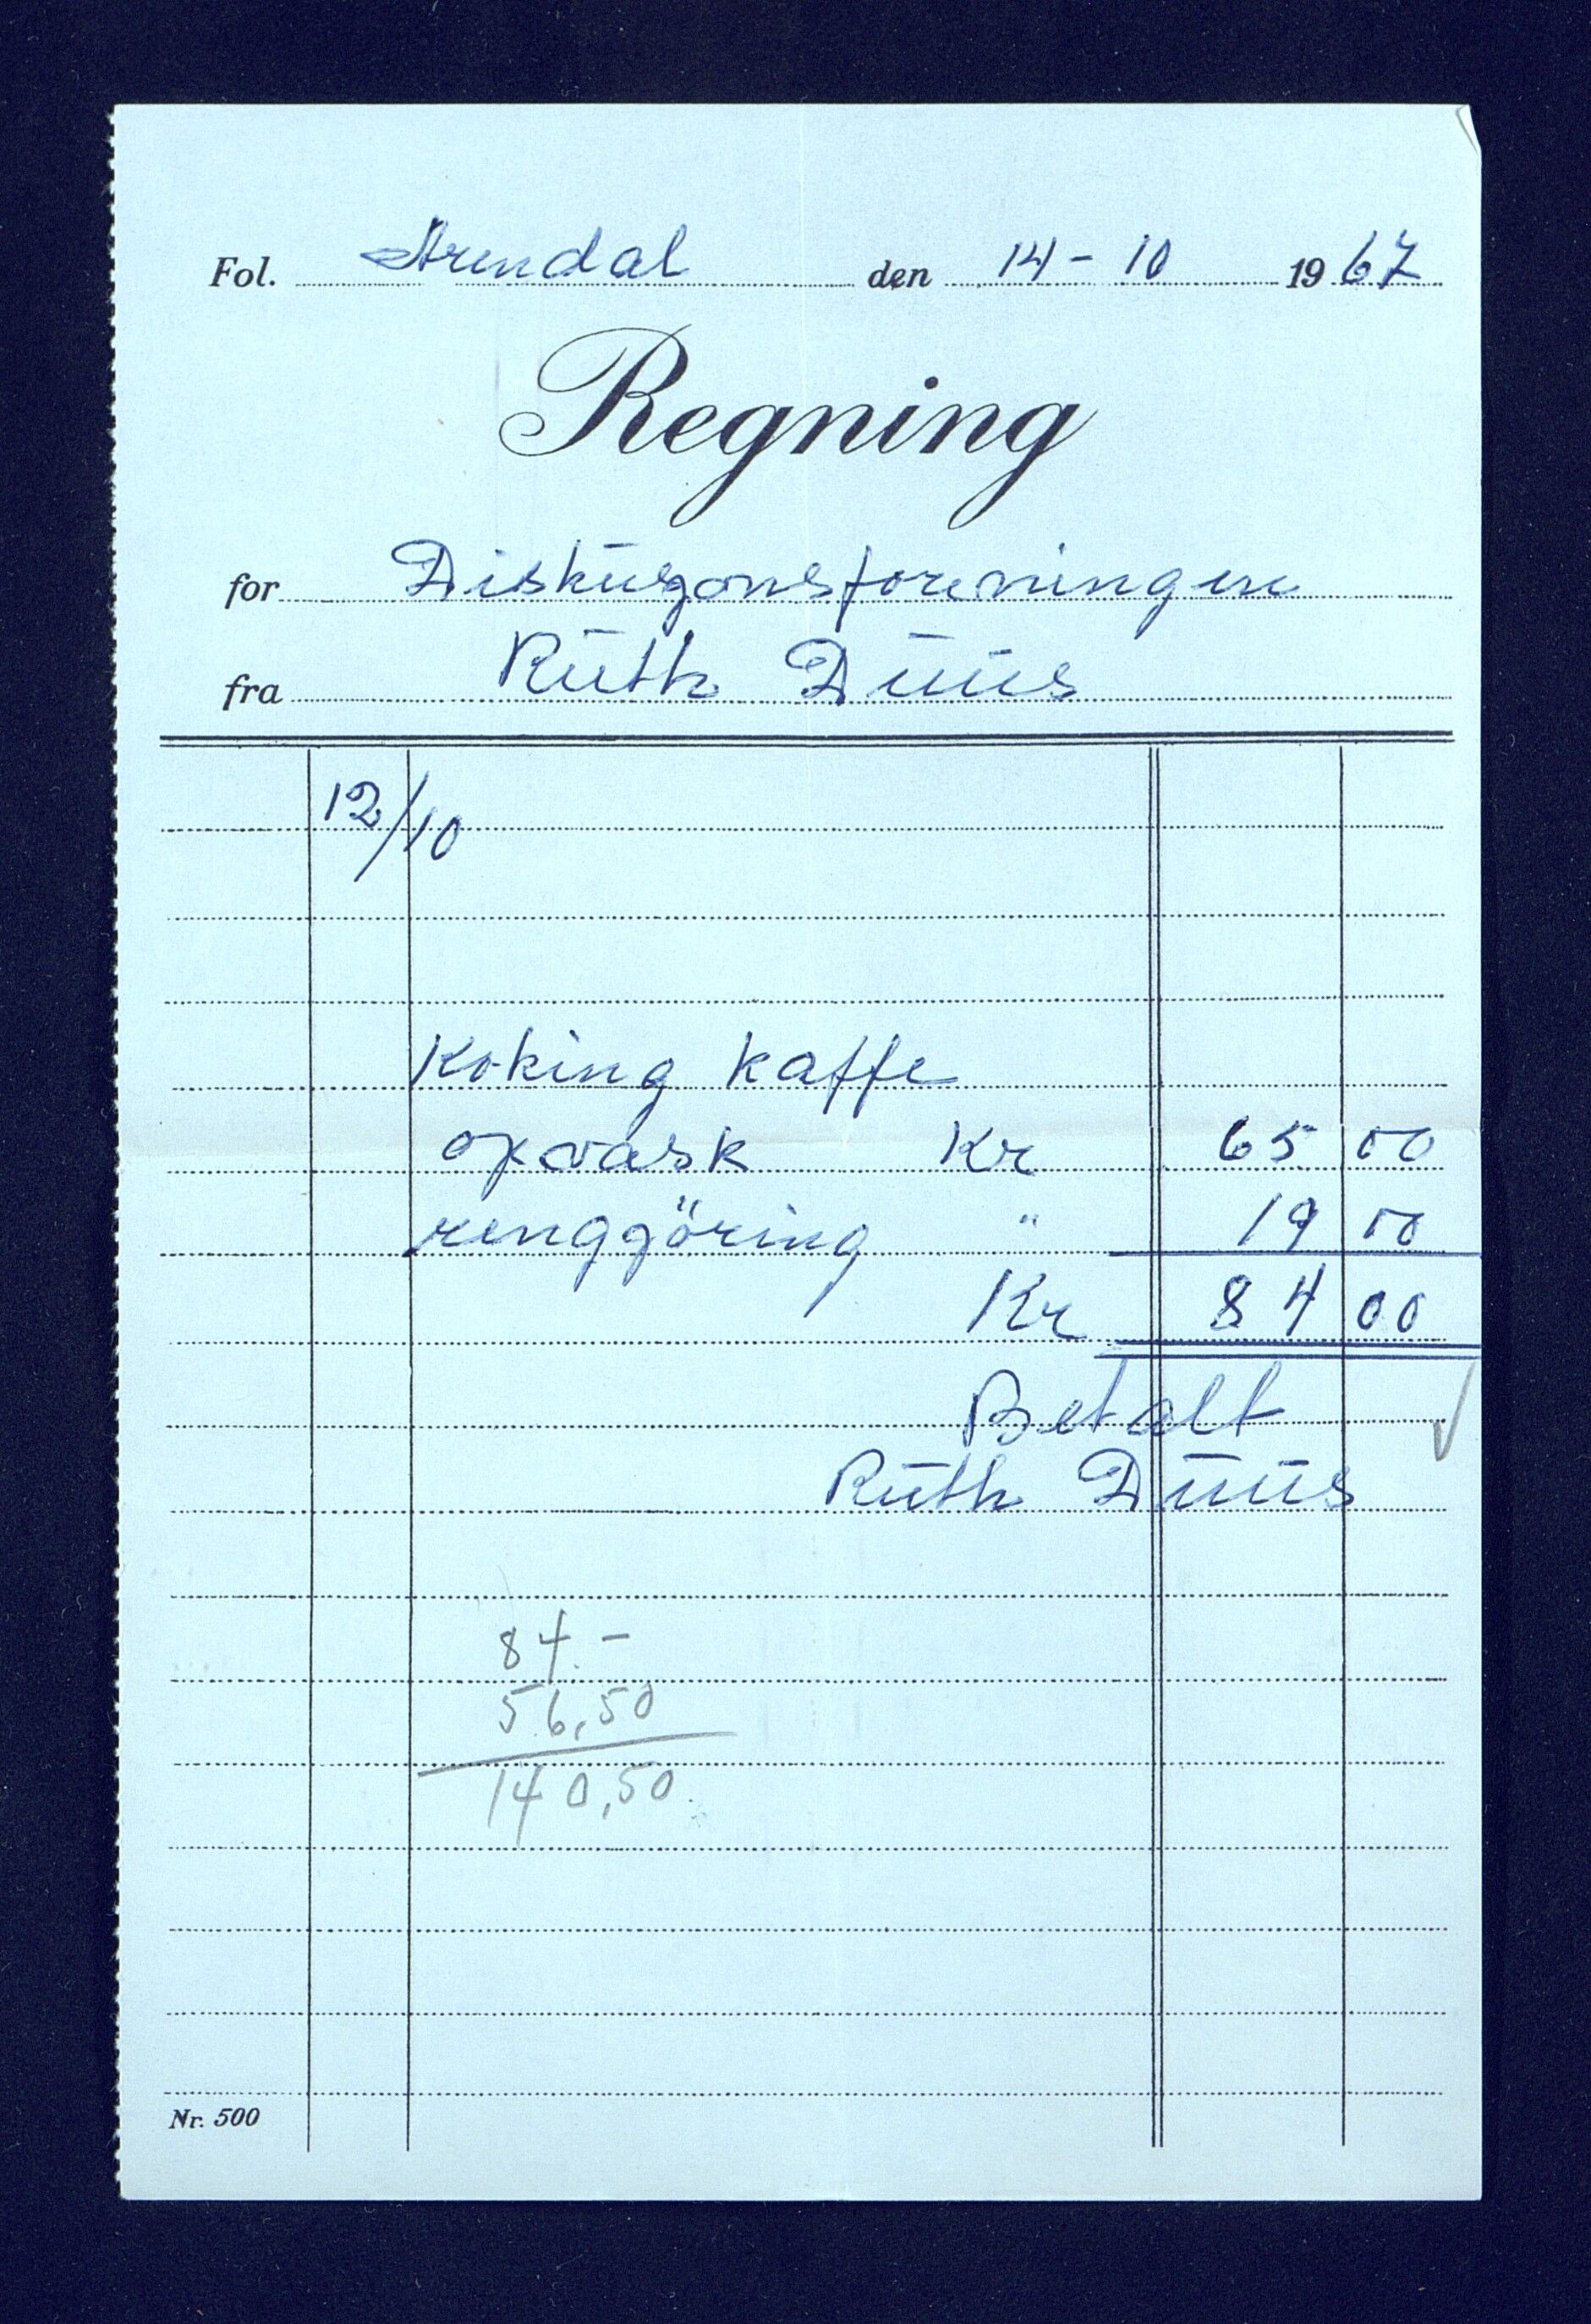 Fol. Arendal den 14-10 1967
Regning
for Diskusjonsforeningen
fra Ruth Duus
12/10
Koking kaffe
opvask Kr 65 00
renggöring " 19 00
Kr 84 00
Betalt
Ruth Duus
84.-
56,50
140,50
Nr. 500